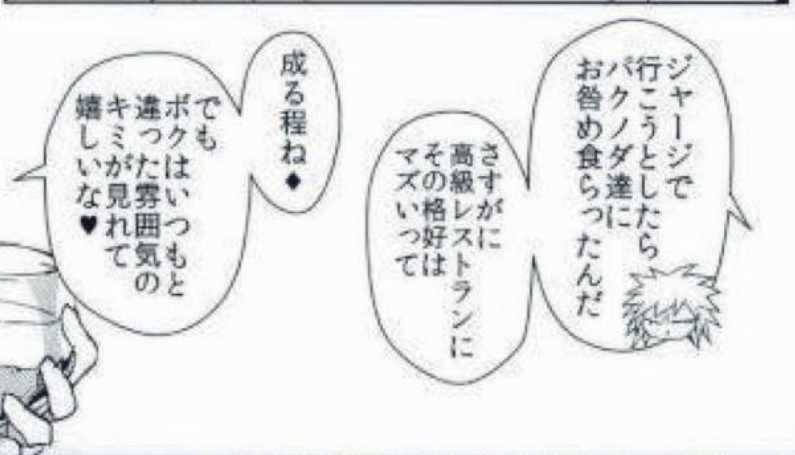 ジャージで
行こうとしたら
パクノダ達に
お咎め食らったんだ
さすがに
高級レストランに
その格好は
マズいって
成る程ね♦
でも
ボクはいつもと
違った雰囲気の
キミが見れて
嬉しいな♥